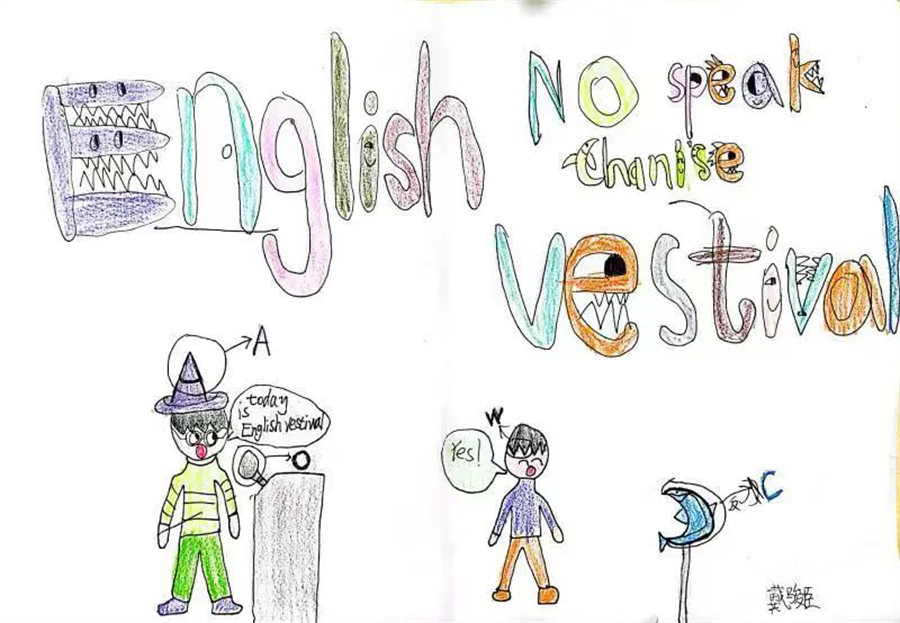 English
No speak
Chanise
Vestival
A
today
is
English vestival
O
W
Yes!
反 C